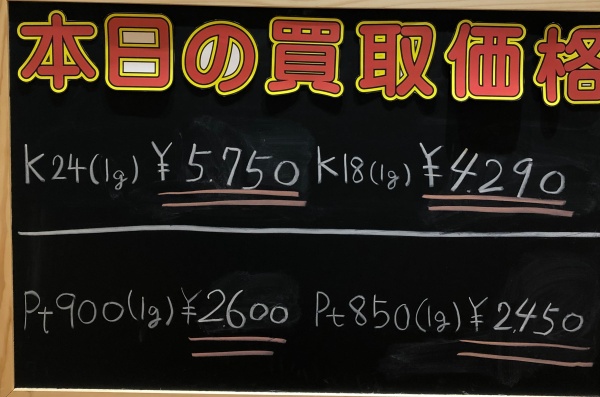 本日の買取価格
K24(1g) ¥5.750 K18(1g) ¥4.290
Pt900(1g) ¥2600 Pt850(1g) ¥2.450